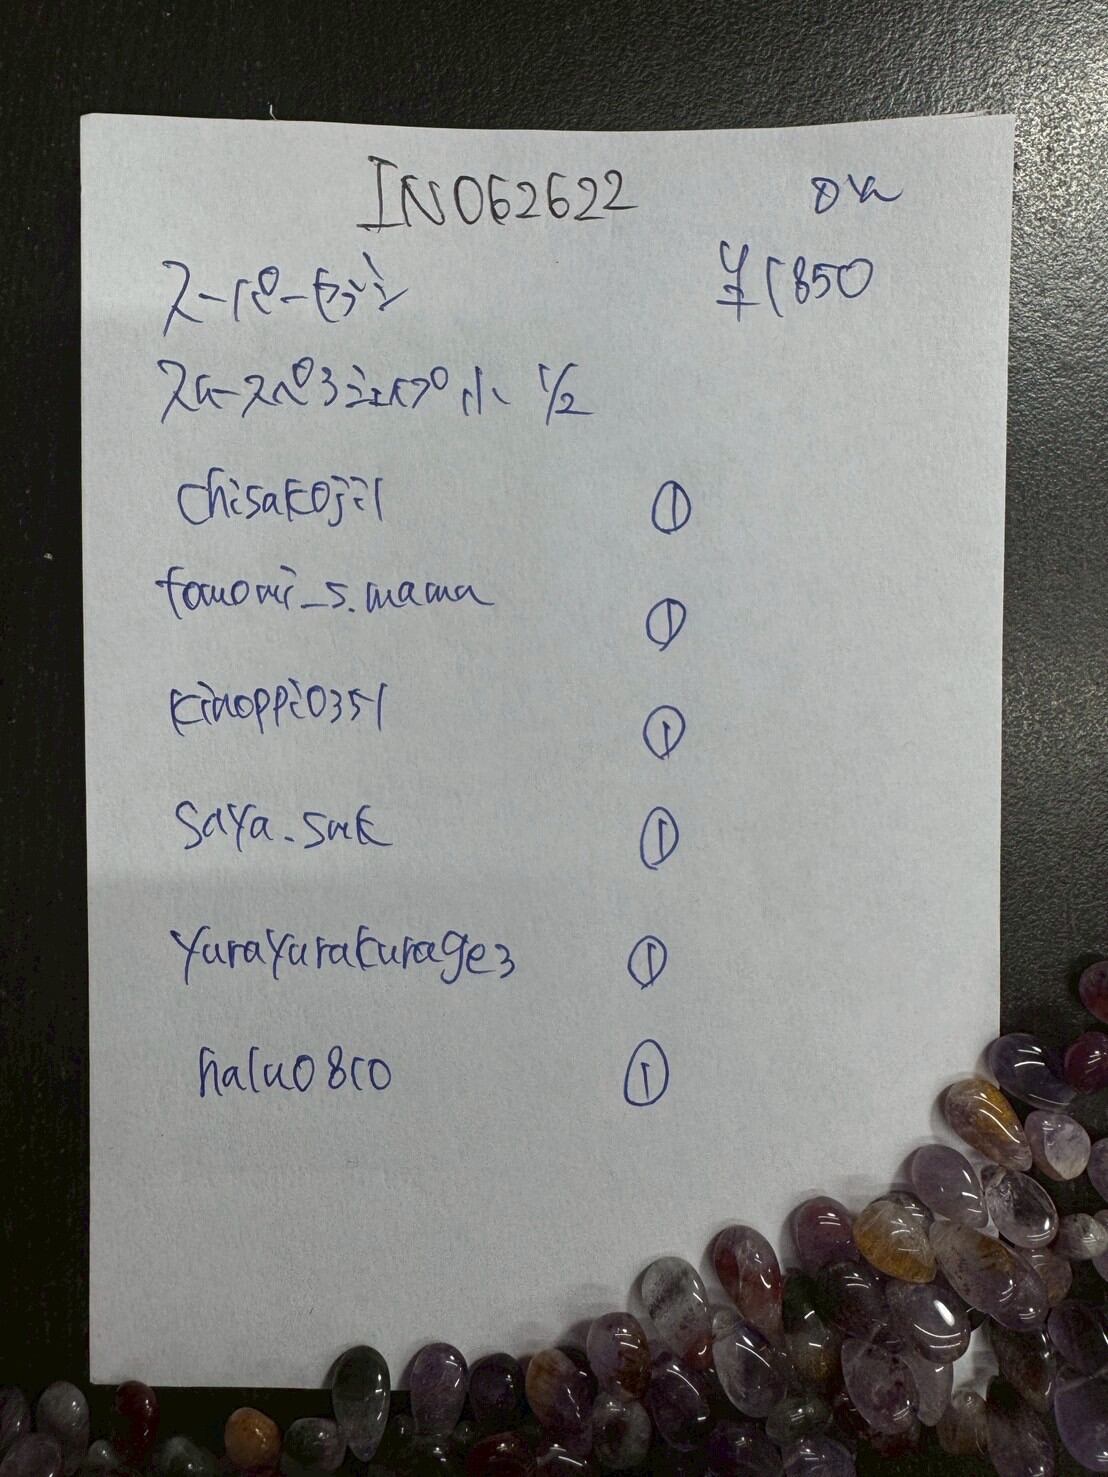 IN062622 OK
スーパーセブン ¥1850
スムースペアシェイプ 小 1/2
chisakoji1 ①
tomomi_s.mama ①
kinoppi0351 ①
saya.suk ①
yurayurakurage3 ①
halu0810 ①